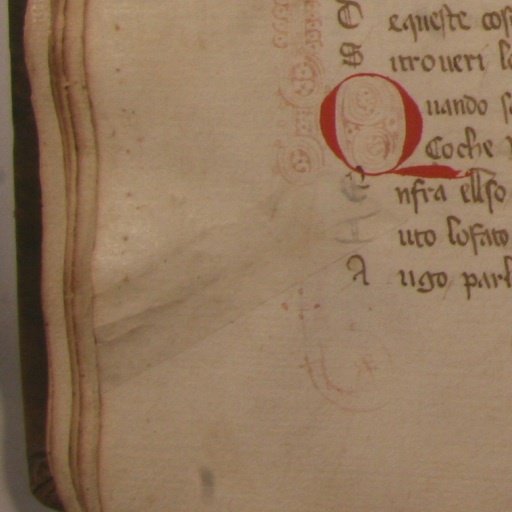 E equeste cos
S itroueri lo
Quando s
Coche
nfra ellso
uto lofato
A ugo parl